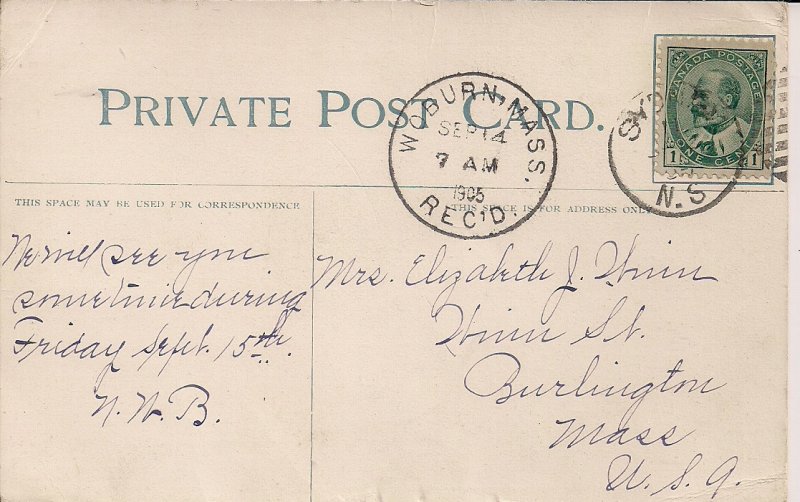 PRIVATE POST CARD.
WOBURN, MASS.
SEP 14
7 AM
1905
REC'D.
SYD
N.S
CANADA POSTAGE
1 ONE CENT 1
THIS SPACE MAY BE USED FOR CORRESPONDENCE
THIS SPACE IS FOR ADDRESS ONLY
We will see you
sometime during
Friday Sept. 15th.
N.W.B.
Mrs. Elizabeth J. Winn
Winn St.
Burlington
Mass
U.S.A.